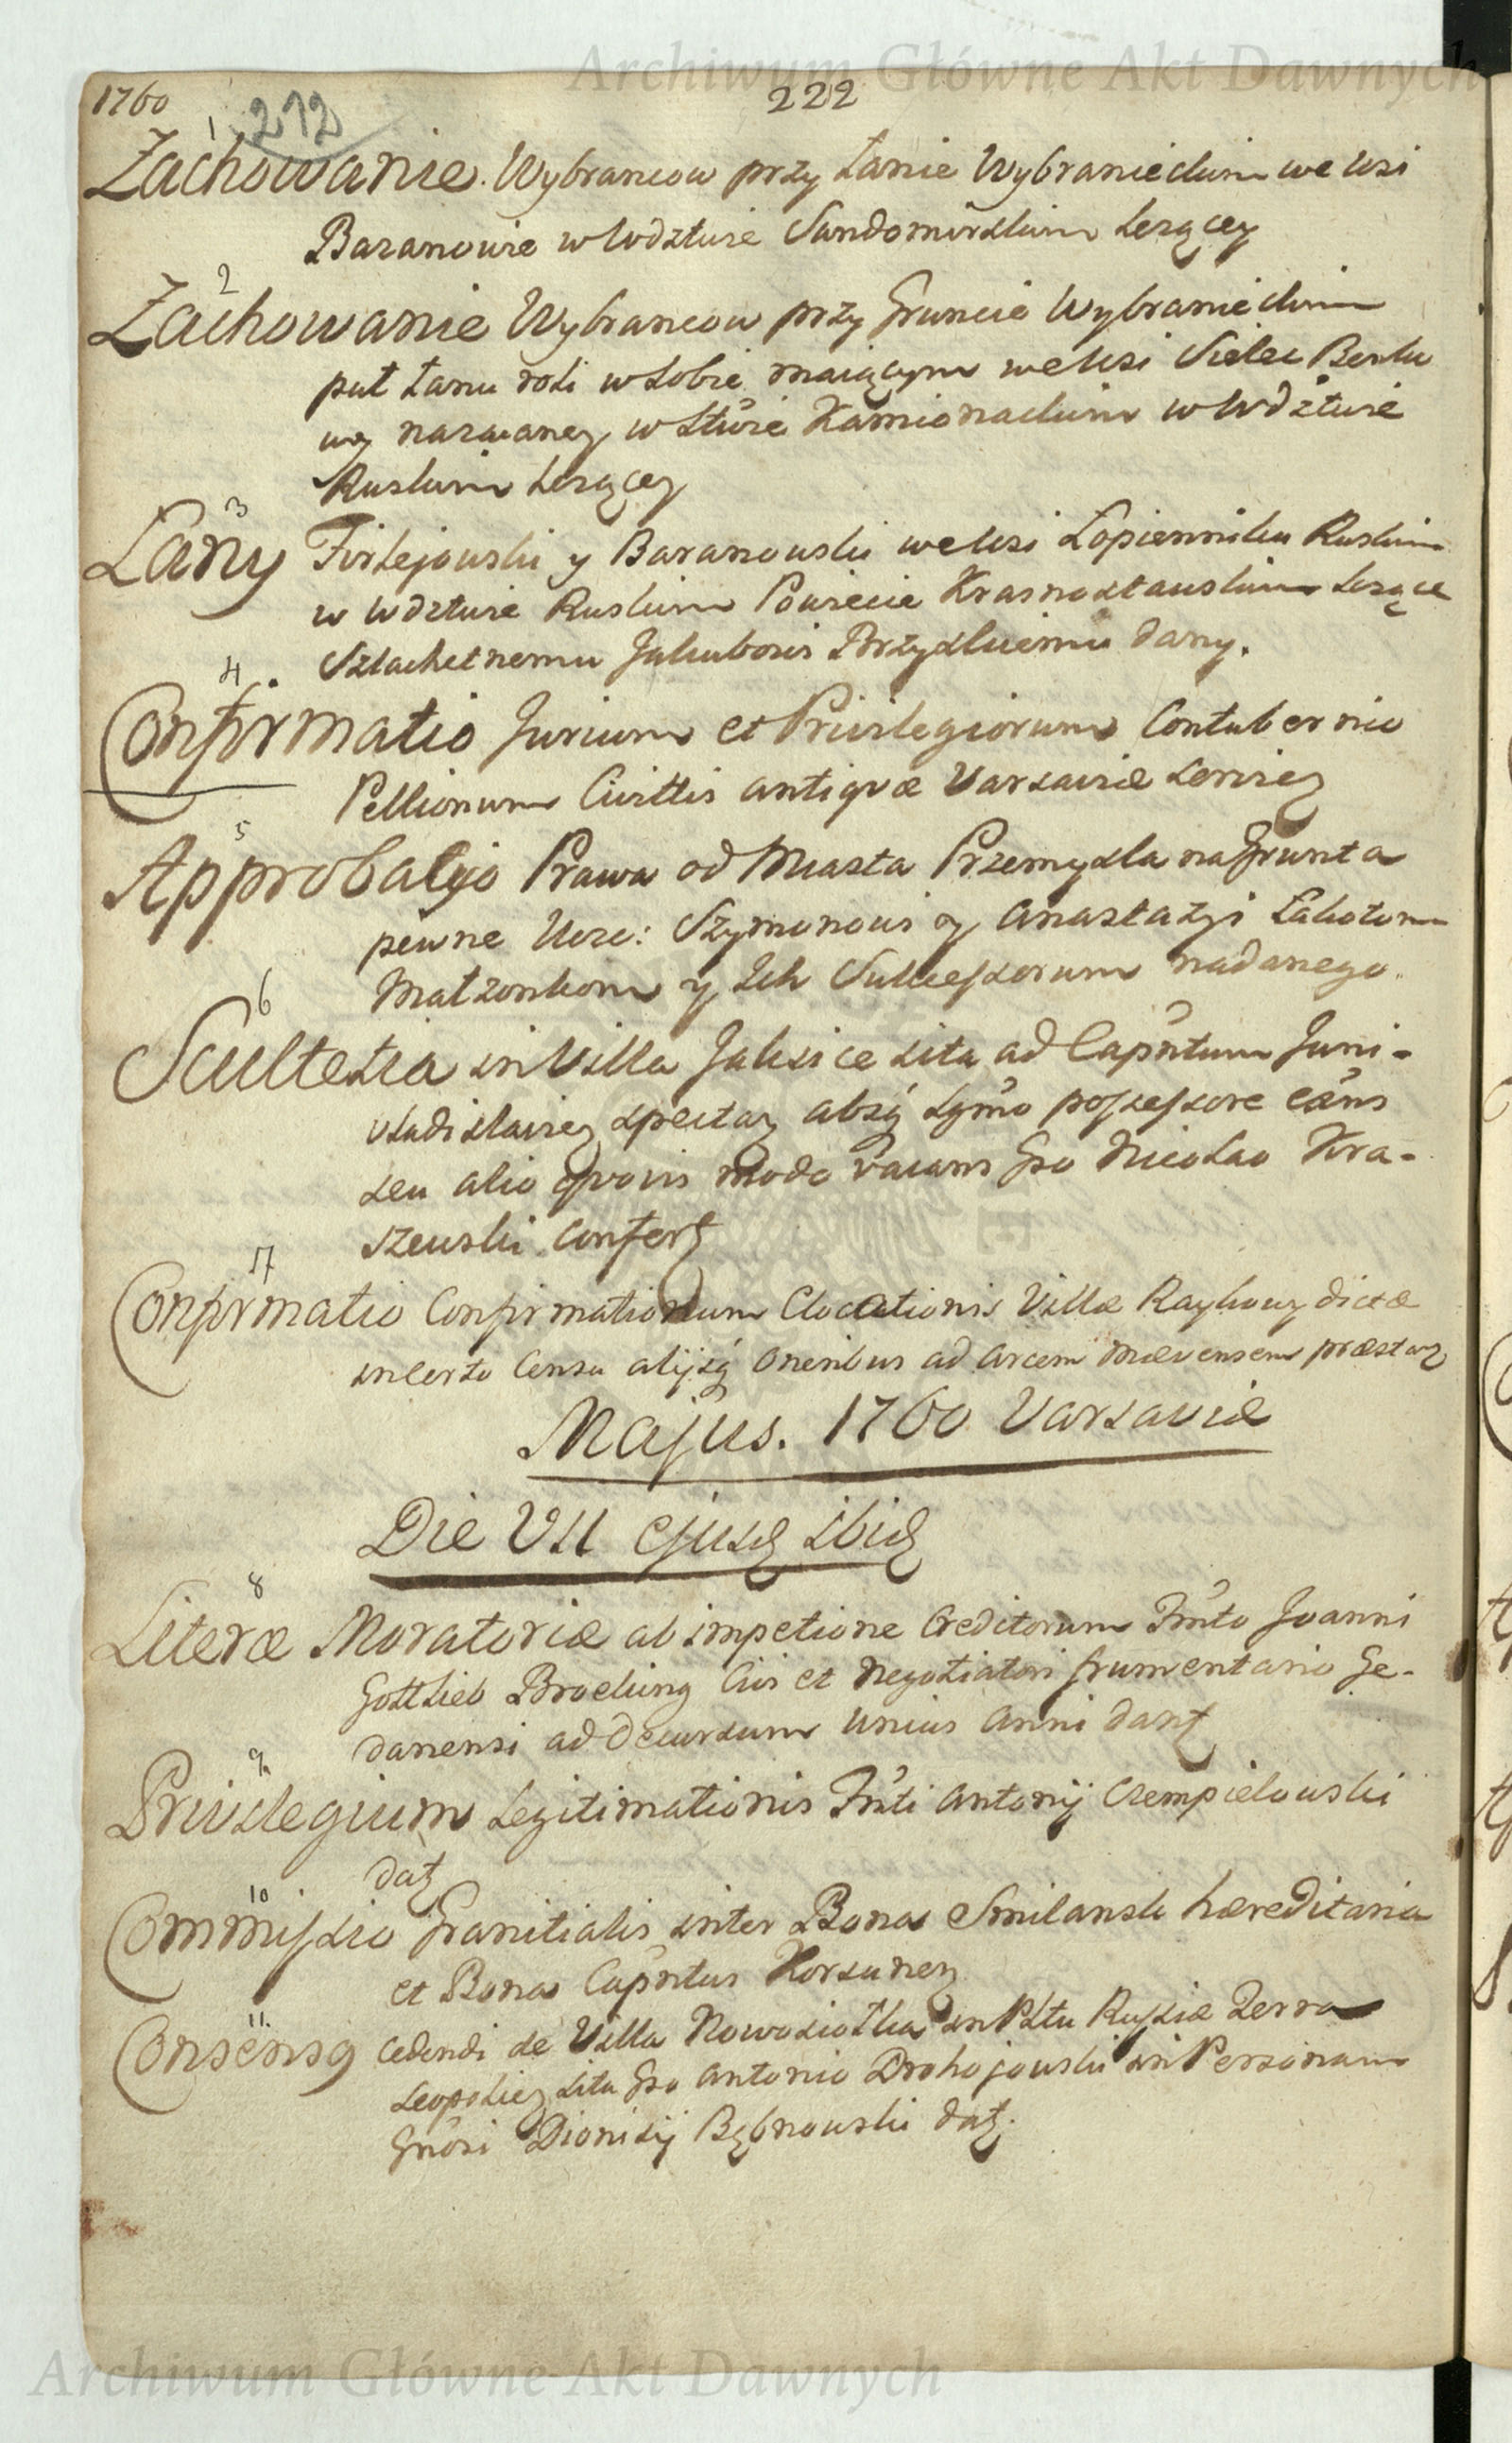 Archiwum Główne Akt Dawnych
1760
222
212
1
Zachowanie Wybrancow przy Łanie Wybranieckim we Wsi
Baranowie w Wdztwie Sandomirskim Leżącey
2
Zachowanie Wybrancow przy Gruncie Wybranieckim
puł Łanu roli w sobie maiącym we Wsi Sielec Beńko
wy nazwaney w Stwie Kamionackim w Wdztwie
Ruskim Leżącey
3
Łany Firlejowski y Baranowski we Wsi Łopienniku Ruskim
w Wdztwie Ruskim Powiecie Krasnostawskim Leżące
Szlachetnemu Jakubowi Brzyskiemu dany.
4.
Confirmatio Jurium et Privilegiorum Contubernio
Pellionum Civittis antiqvæ Varsaviæ servieȝ
5
Approbacyo Prawa od Miasta Przemysla na Grunta
pewne Ucze: Szymonowi y Anastazyi
Małzonkom y Ich Sukcessorum nadanego.
6
Scultetia in Villa Jaksice sita ad Capntum Juni-
vladislavieȝ spectaȝ absq̃ Lgmo possessore eans
seu alio qvovis modo vacans Gso Nicolao Kra-
szewski Confertʒ
7
Confirmatio Confirmationum Elocationis Villæ Raykowy dictæ
in certo Censu alijsq̃ Oneribus ad Arcem Mævensem præstaȝ
Majus. 1760 Varsaviæ
Die VII ejusdʒ ibidʒ
8
Literæ Moratoriæ ab impetione Creditorum Fmto Joanni
Gottlieb Broclung Civi et Negotiatori frumentario Ge-
danensi ad Decursum Unius Anni dantʒ
9.
Privilegium Legitimationis Fmti Antonij Czempielowski
datʒ
10
Commissio Granitialis inter Bona Smilansk hæreditaria
et Bona Capntus Korsuneȝ
11.
Consensꝯ cedendi de Villa Nowosiołka in Pltu Russiæ Terra
Leopolieȝ sita Gso Antonio Drohojowski in Personam
Gnosi Dionisij Bębnowski datʒ.
Archiwum Główne Akt Dawnych